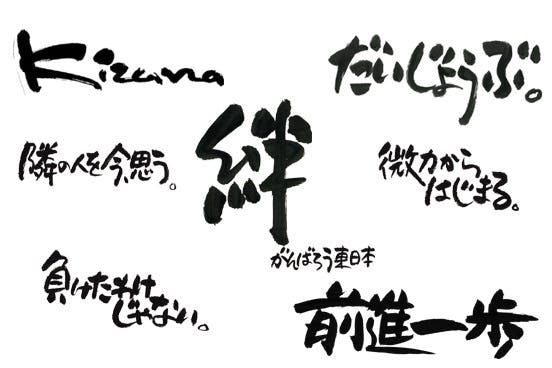 Kizuna
だいじょうぶ。
絆
隣の人を今、思う。
微力から
はじまる。
がんばろう東日本
負けたわけ
じゃない。
前進一歩